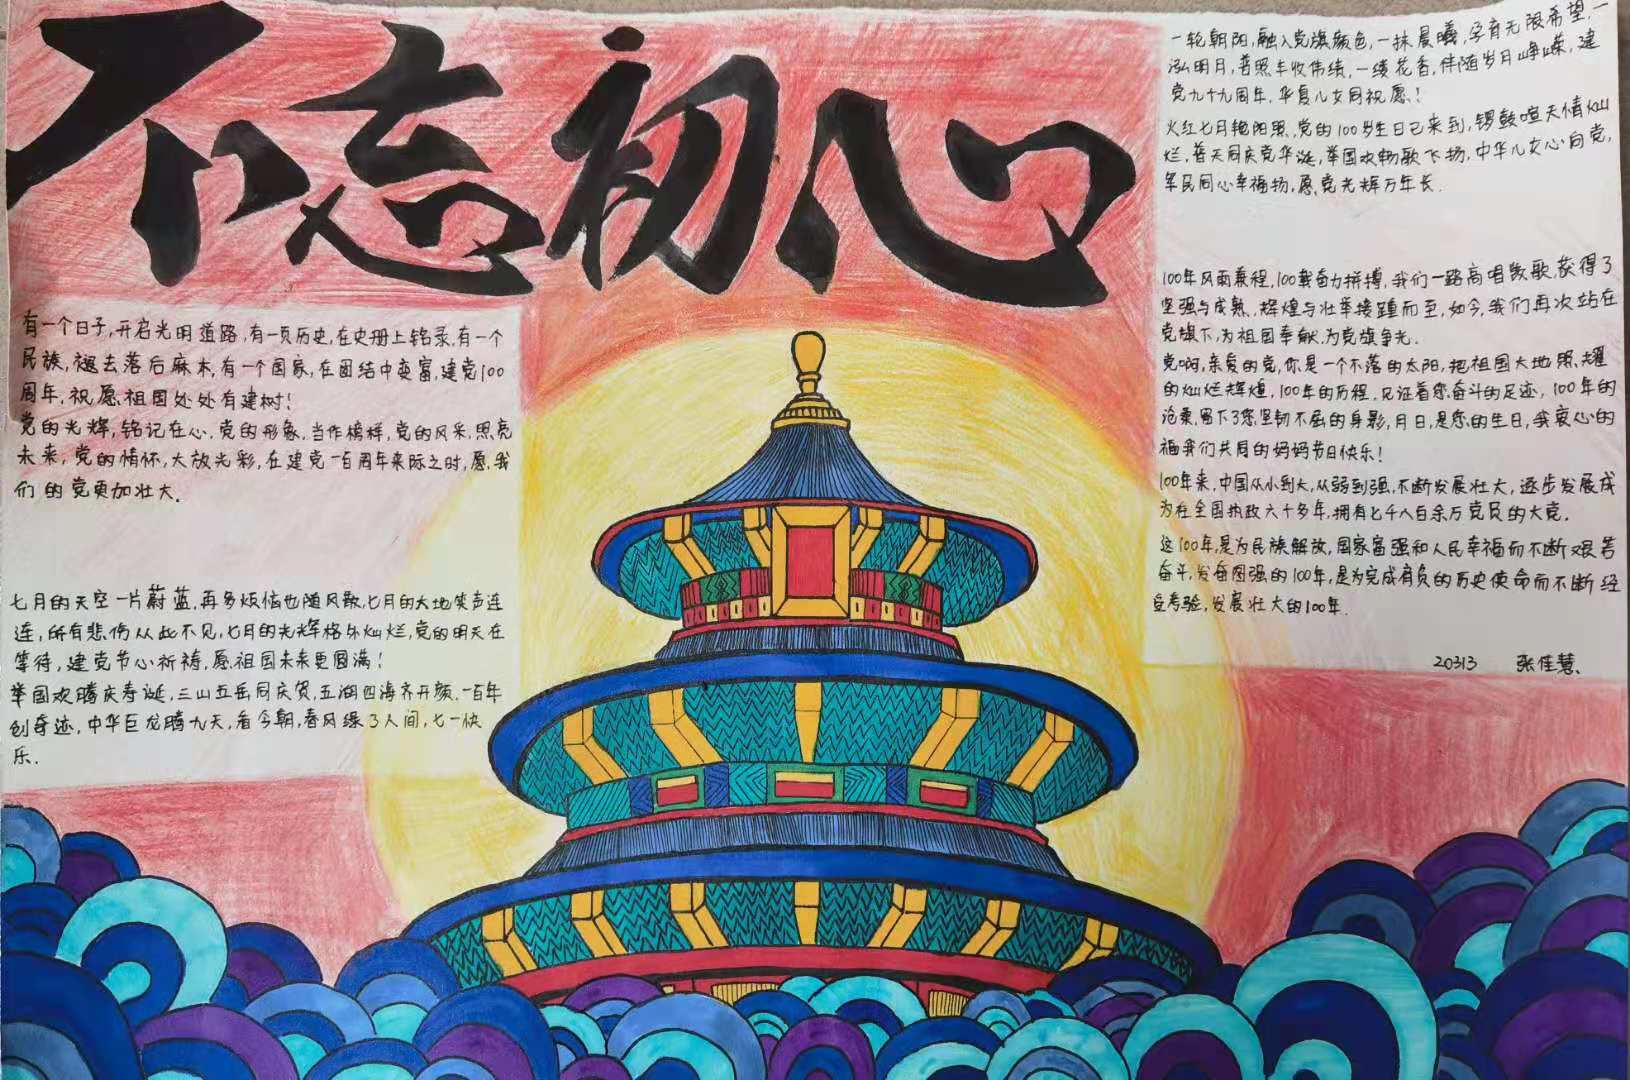 不忘初心
有一个日子,开启光明道路,有一页历史,在史册上铭录,有一个
民族,褪去落后麻木,有一个国家,在团结中变富,建党100
周年,祝愿祖国处处有建树!
党的光辉,铭记在心,党的形象,当作榜样,党的风采,照亮
未来,党的情怀,大放光彩,在建党一百周年来际之时,愿我
们的党更加壮大.
七月的天空一片蔚蓝,再多烦恼也随风散,七月的大地笑声连
连,所有悲伤从此不见,七月的光辉格外灿烂,党的明天在
等待,建党节心祈祷,愿祖国未来更圆满!
举国欢腾庆寿诞,三山五岳同庆贺,五湖四海齐开颜.一百年
创奇迹,中华巨龙腾九天,看今朝,春风绿了人间,七一快
乐.
一轮朝阳,融入党旗颜色,一抹晨曦,孕育无限希望,一
泓明月,普照丰收伟绩,一缕花香,伴随岁月峥嵘,建
党九十九周年,华夏儿女同祝愿!
火红七月艳阳照,党的100岁生日已来到,锣鼓喧天情灿
烂,普天同庆党华诞,举国欢畅歌飞扬,中华儿女心向党,
军民同心幸福扬,愿党光辉万年长.
100年风雨兼程,100载奋力拼搏,我们一路高唱数歌,获得了
坚强与成熟,辉煌与壮举接踵而至,如今,我们再次站在
党旗下,为祖国奉献,为党旗争光.
党啊,亲爱的党,你是一个不落的太阳,把祖国大地照耀
的灿烂辉煌,100年的历程,见证着您奋斗的足迹,100年的
沧桑,留下了您坚韧不屈的身影,月日,是您的生日,我衷心的
福我们共同的妈妈节日快乐!
100年来,中国从小到大,从弱到强,不断发展壮大,逐步发展成
为在全国执政六十多年,拥有七千八百余万党员的大党.
这100年,是为民族解放,国家富强和人民幸福而不断艰苦
奋斗,发奋图强的100年,是为完成肩负的历史使命而不断经
受考验,发展壮大的100年.
20313 张佳慧